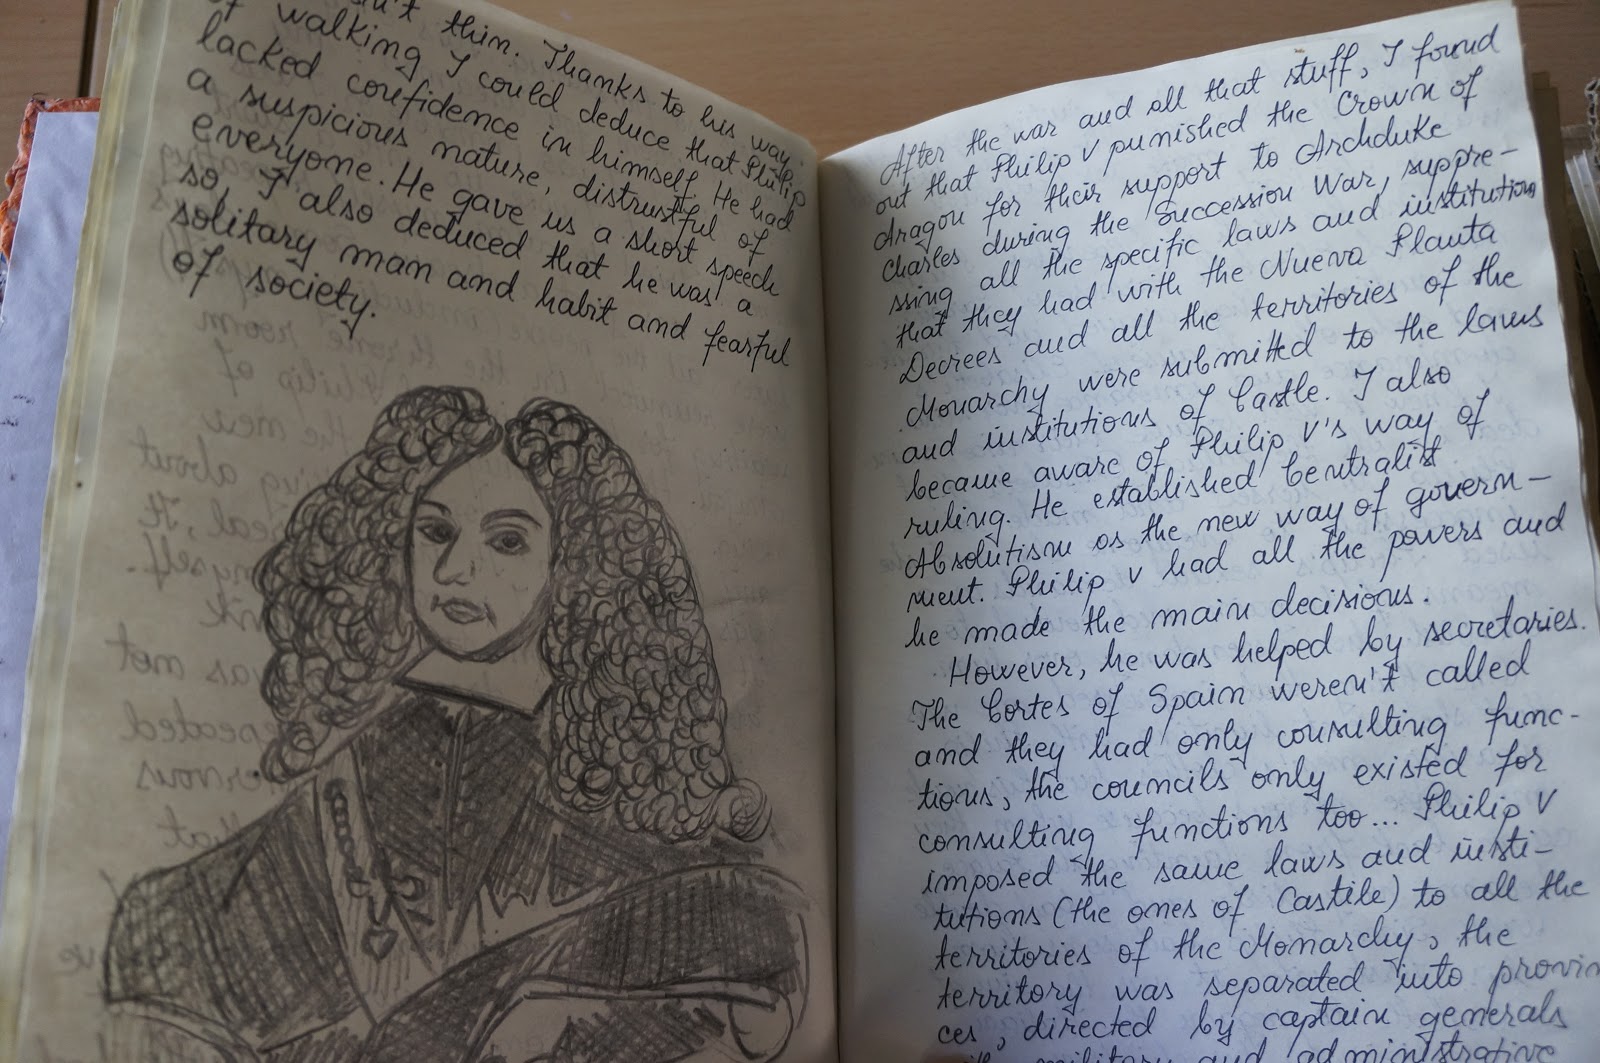 thin. Thanks to his way
of walking I could deduce that Philip
lacked confidence in himself. He had
a suspicious nature, distrustful of
everyone. He gave us a short speech
so, I also deduced that he was a
solitary man and habit and fearful
of society.
After the war and all that stuff, I found
out that Philip V punished the Crown of
Aragon for their support to Archduke
Charles during the Succession War, suppre-
ssing all the specific laws and institutions
that they had with the Nueva Planta
Decrees and all the territories of the
Monarchy were submitted to the laws
and institutions of Castle. I also
became aware of Philip V's way of
ruling. He established Centralist
Absolutism as the new way of govern-
ment. Philip V had all the powers and
he made the main decisions.
However, he was helped by secretaries.
The Cortes of Spain weren't called
and they had only consulting func-
tions, the councils only existed for
consulting functions too... Philip V
imposed the same laws and insti-
tutions (the ones of Castile) to all the
territories of the Monarchy, the
territory was separated into provin
ces, directed by captain generals
military and administrative